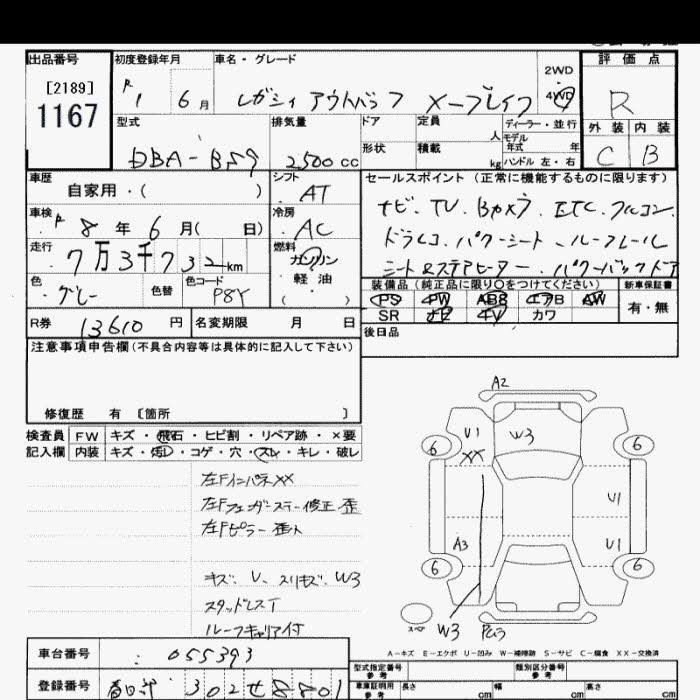 出品番号
[2189]
1167
初度登録年月
R 1 6 月
車名・グレード
レガシィ アウトバック X-ブレイク
2WD
4WD
評価点
R
外装 内装
C B
型式
DBA-BS9
排気量
2500 cc
ドア
形状
定員
人
積載
kg
ディーラー・並行
モデル
年式 年
ハンドル 左・右
車歴
自家用・( )
シフト
AT
車検
R 8 年 6 月( 日)
冷房
AC
走行
7万3千732 km
燃料
ガソリン
・
軽油
( )
色
グレー
色替
色コード
P8Y
R券
13610 円
名変期限 月 日
セールスポイント(正常に機能するものに限ります)
ナビ.TV.Bカメラ.ETC.フルコン.
ドラレコ.パワーシート.ルーフレール
シート&ステアヒーター.パワーバックドア
装備品(純正品に限り〇をつけてください)
PS PW ABS エアB AW
SR ナビ TV カワ
新車保証書
有・無
後日品
注意事項申告欄(不具合内容等は具体的に記入して下さい)
修復歴 有 〔箇所 〕
検査員
記入欄
FW キズ・飛石・ヒビ割・リペア跡・×要
内装 キズ・汚レ・コゲ・穴・スレ・キレ・破レ
左Fインパネ XX
左Fフェンダーステー修正 歪
左Fピラー 歪ト
キズ、U、スリキズ、W3
スタッドレスT
ルーフキャリア付
A2
U1
W3
XX
6
6
U1
A3
U1
6
6
スペア
W3
A-キズ E-エクボ U-凹み W-補修跡 S-サビ C-腐食 XX-交換済
車台番号
055393
登録番号
春日部 302 せ 8801
型式指定番号
参考
類別区分番号
参考
車庫証明用
参考
長さ cm
幅 cm
高さ cm